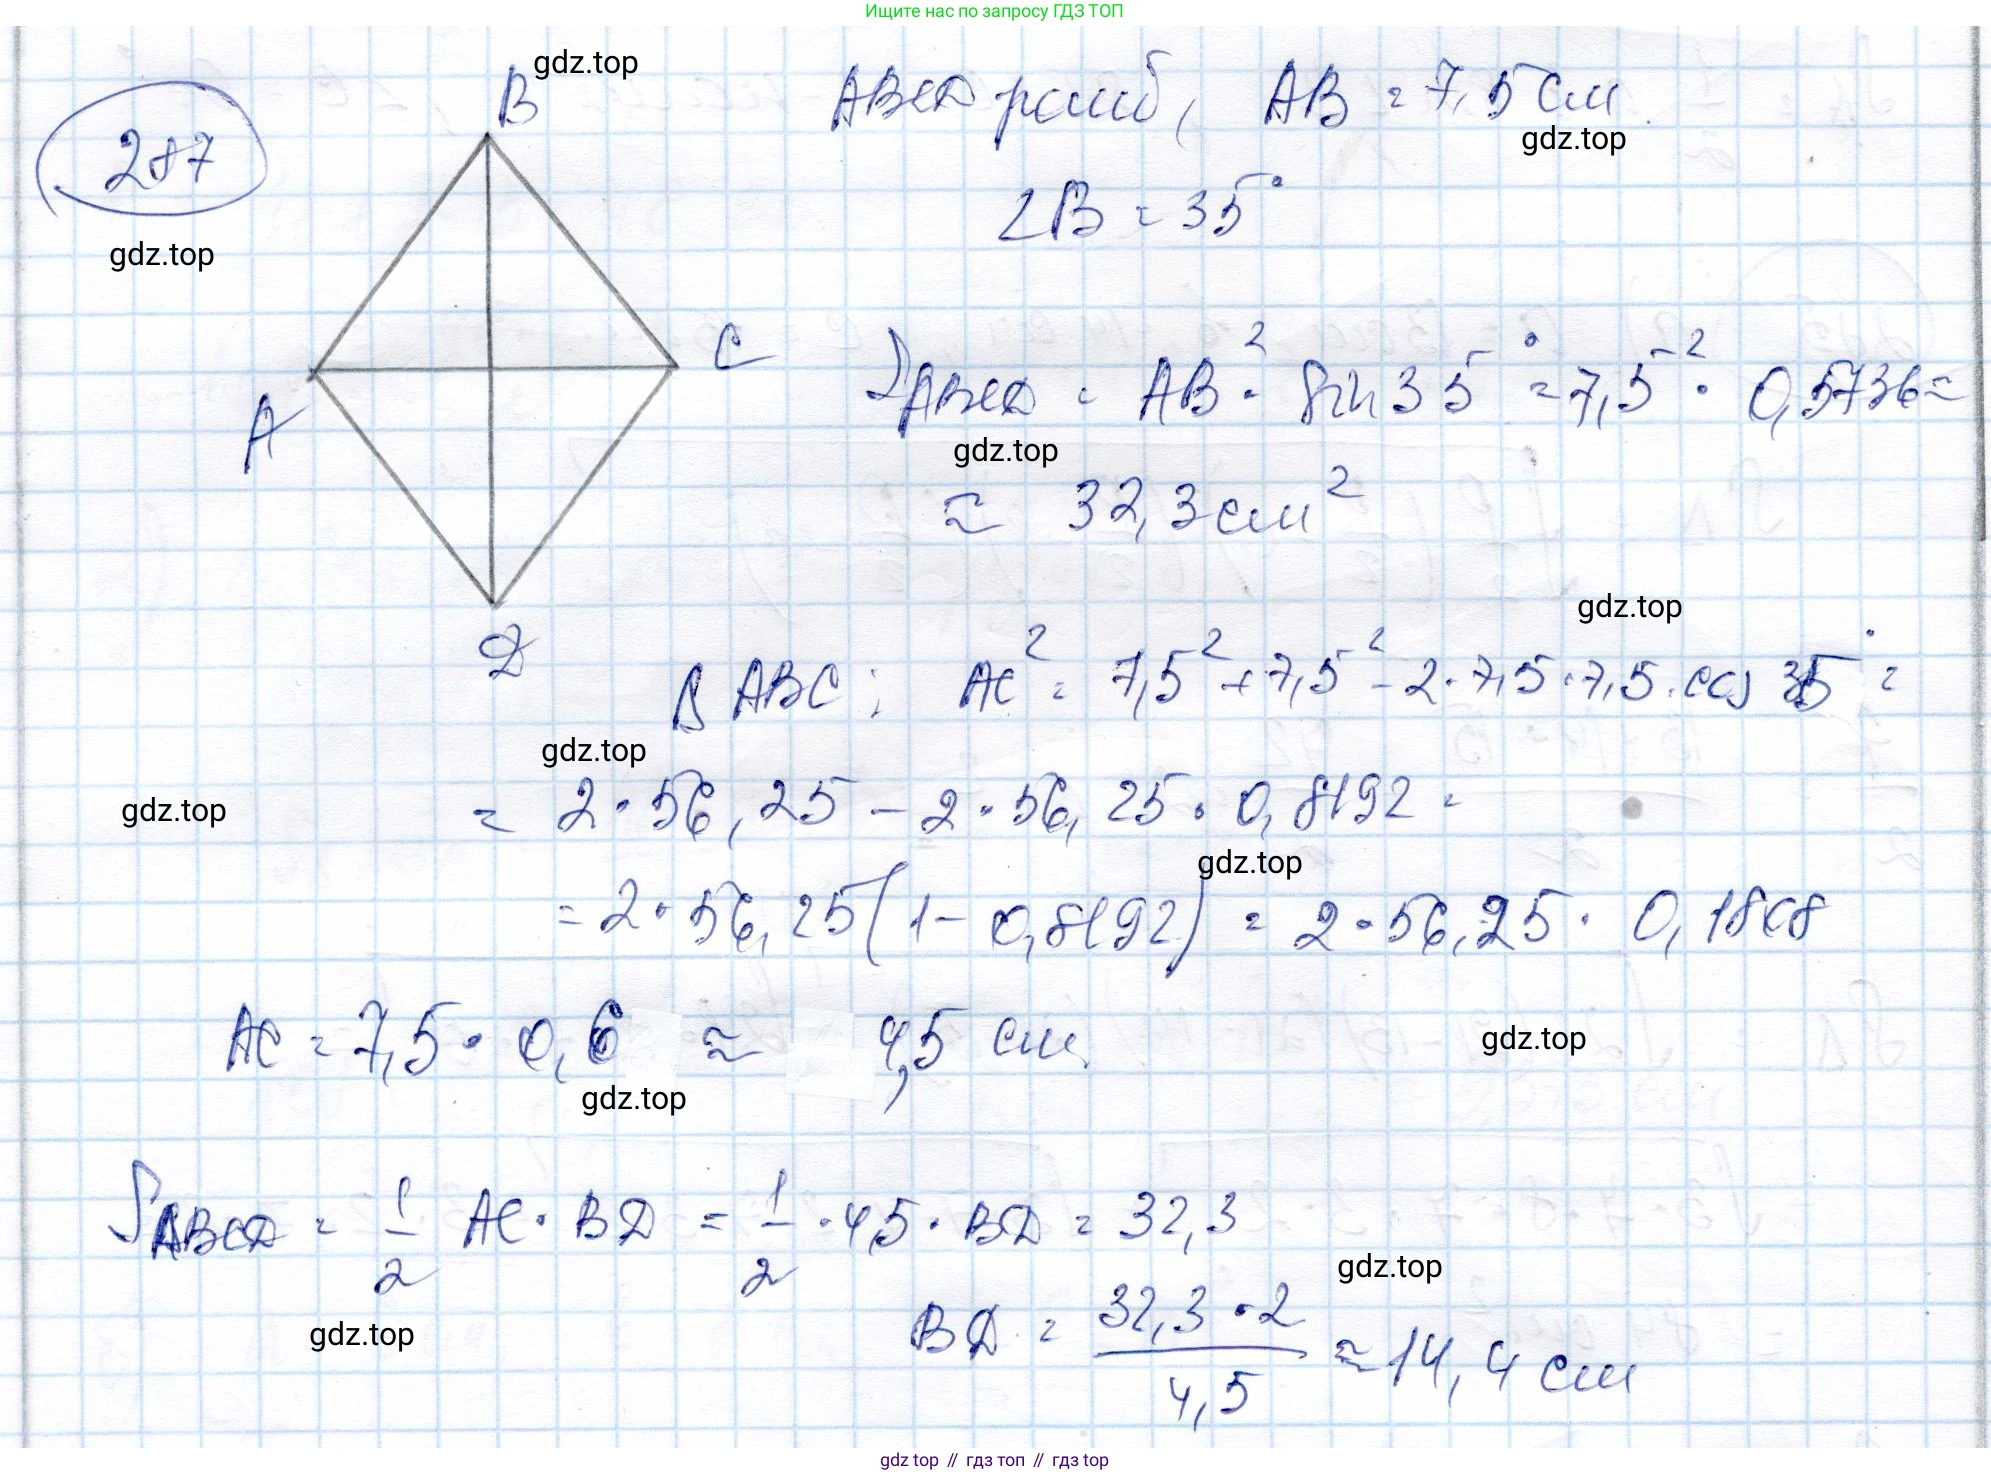 Ищите нас по запросу ГДЗ ТОП
287
B
gdz.top
ABCD ромб, AB = 7,5 см
gdz.top
∠B = 35°
gdz.top
A
C
D
S ABCD = AB² · sin 35° = 7,5² · 0,5736 ≈
gdz.top
≈ 32,3 см²
gdz.top
В ABC: AC² = 7,5² + 7,5² - 2 · 7,5 · 7,5 · cos 35° =
gdz.top
gdz.top
= 2 · 56,25 - 2 · 56,25 · 0,8192 =
gdz.top
= 2 · 56,25 (1 - 0,8192) = 2 · 56,25 · 0,1808
AC = 7,5 · 0,6 ≈ 4,5 см
gdz.top
gdz.top
S ABCD = 1/2 AC · BD = 1/2 · 4,5 · BD = 32,3
gdz.top
gdz.top
BD = 32,3 · 2 / 4,5 ≈ 14,4 см
gdz top // гдз топ // гдз top